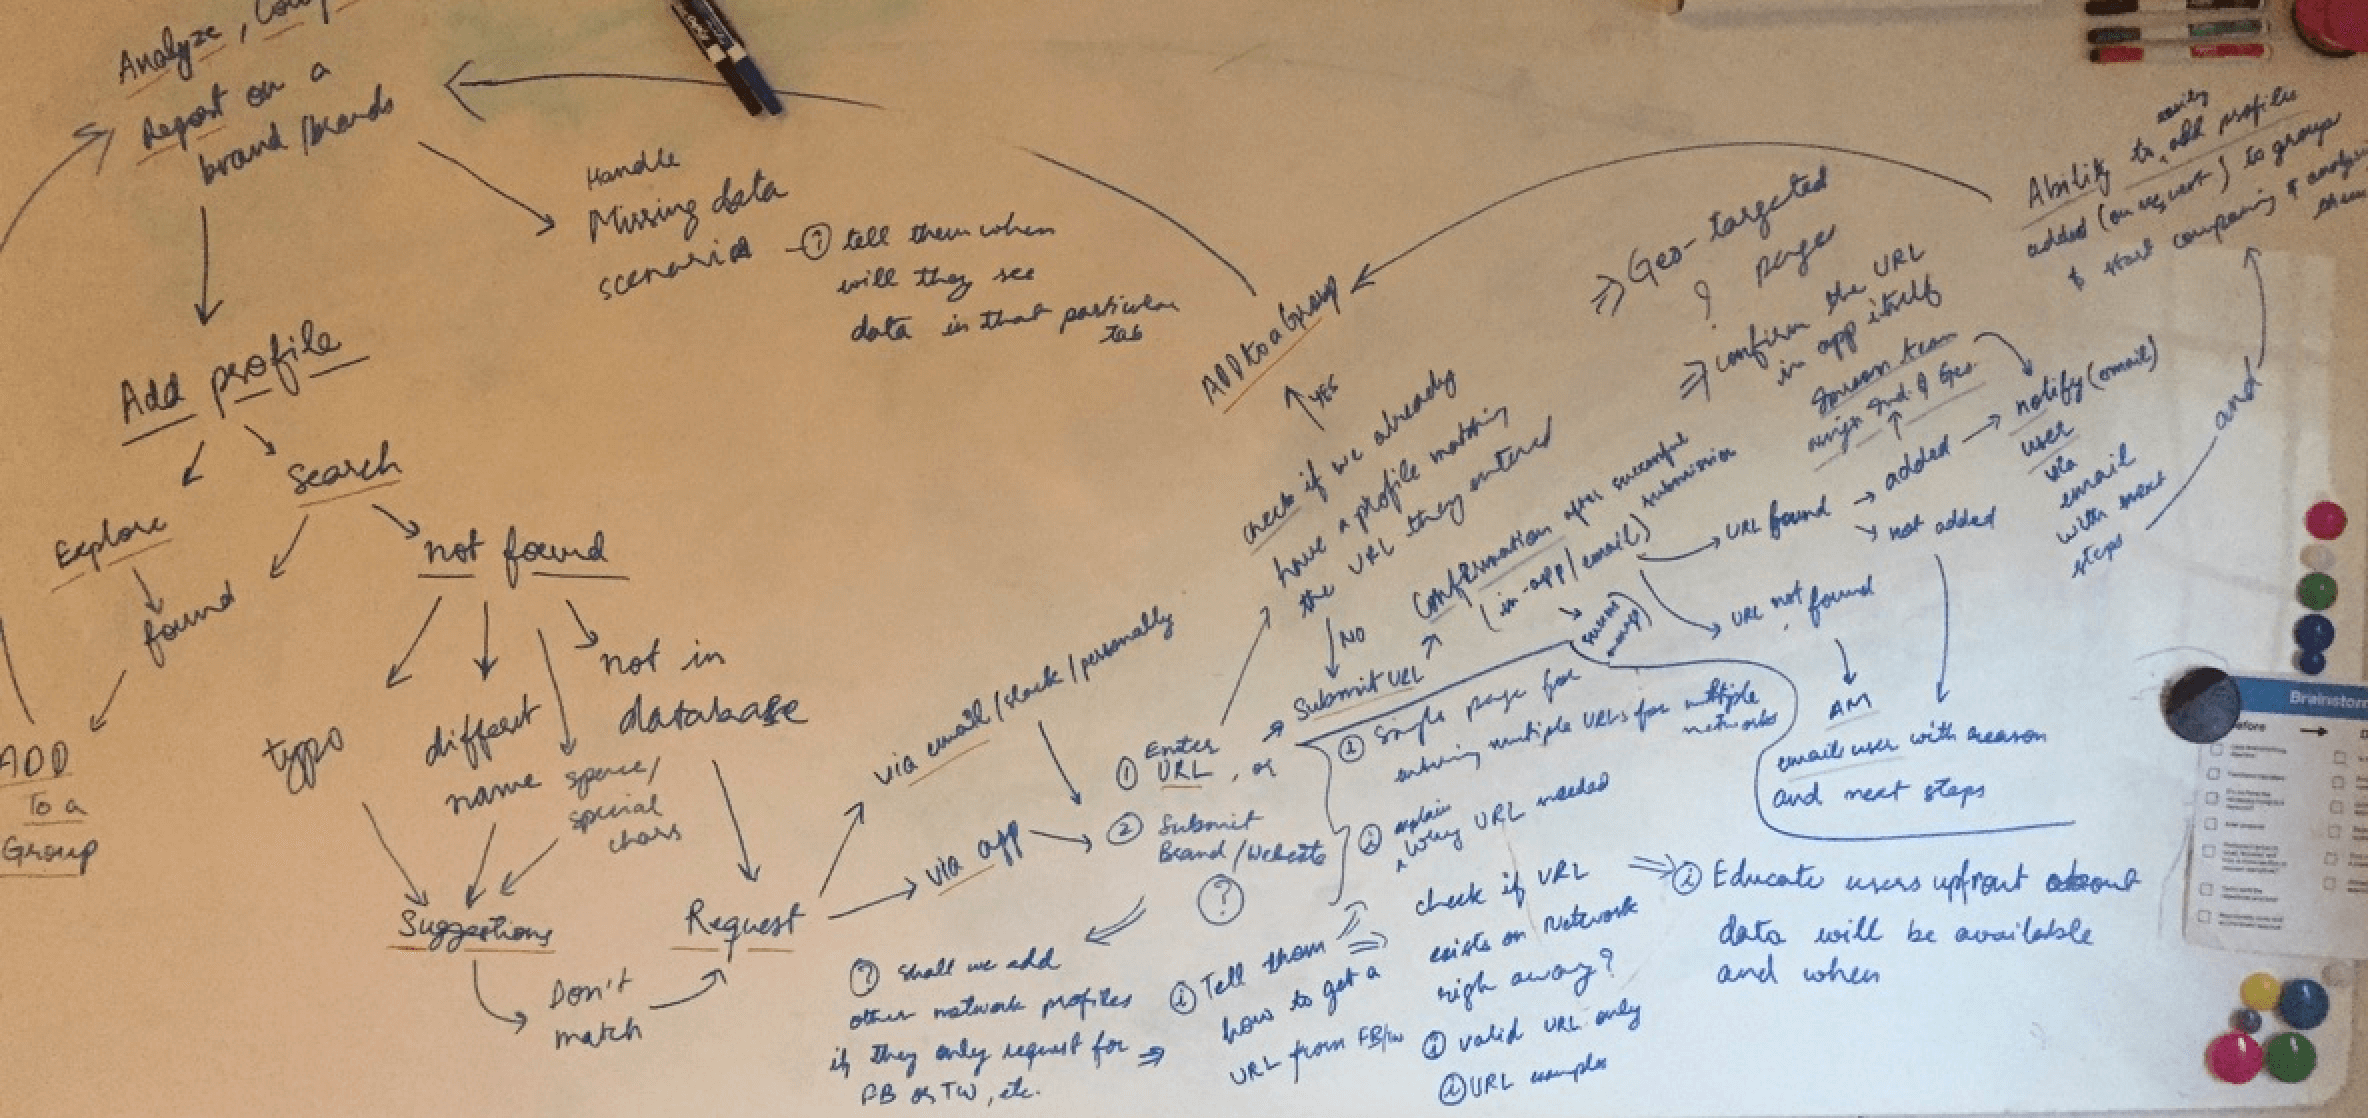 Analyze,
Report on a
brand/brands
Handle
Missing data
scenario
① tell them when
will they see
data in that particular
tab
Add profile
Explore
Search
found
not found
ADD
To a
Group
typo
different
name
space/
special
chars
not in
database
Suggestions
Don't
match
Request
via email/slack/personally
via app
① Enter
URL, or
② Submit
Brand/Website
?
? Shall we add
other network profiles
if they only request for
FB or TW, etc.
ADD to a Group
YES
check if we already
have a profile matching
the URL they entered
NO
Submit URL
Confirmation after successful
submission
(in-app/email)
① Single page for
entering multiple URLs for multiple
networks
② explain
why URL needed
① Tell them
how to get a
URL from FB/tw
check if URL
exists on Network
righ away?
① valid URL only
① URL examples
① Educate users upfront about
data will be available
and when
Geo-targeted
? page
confirm the URL
in app itself
team
assign Ind. & Geo.
URL found
added
not added
URL not found
AM
email user with reason
and next steps
notify (email)
user
via
email
with next
steps
and
Ability to easily add profiles
added (on request) to group
& start comparing & analysi
them
Brainstorm